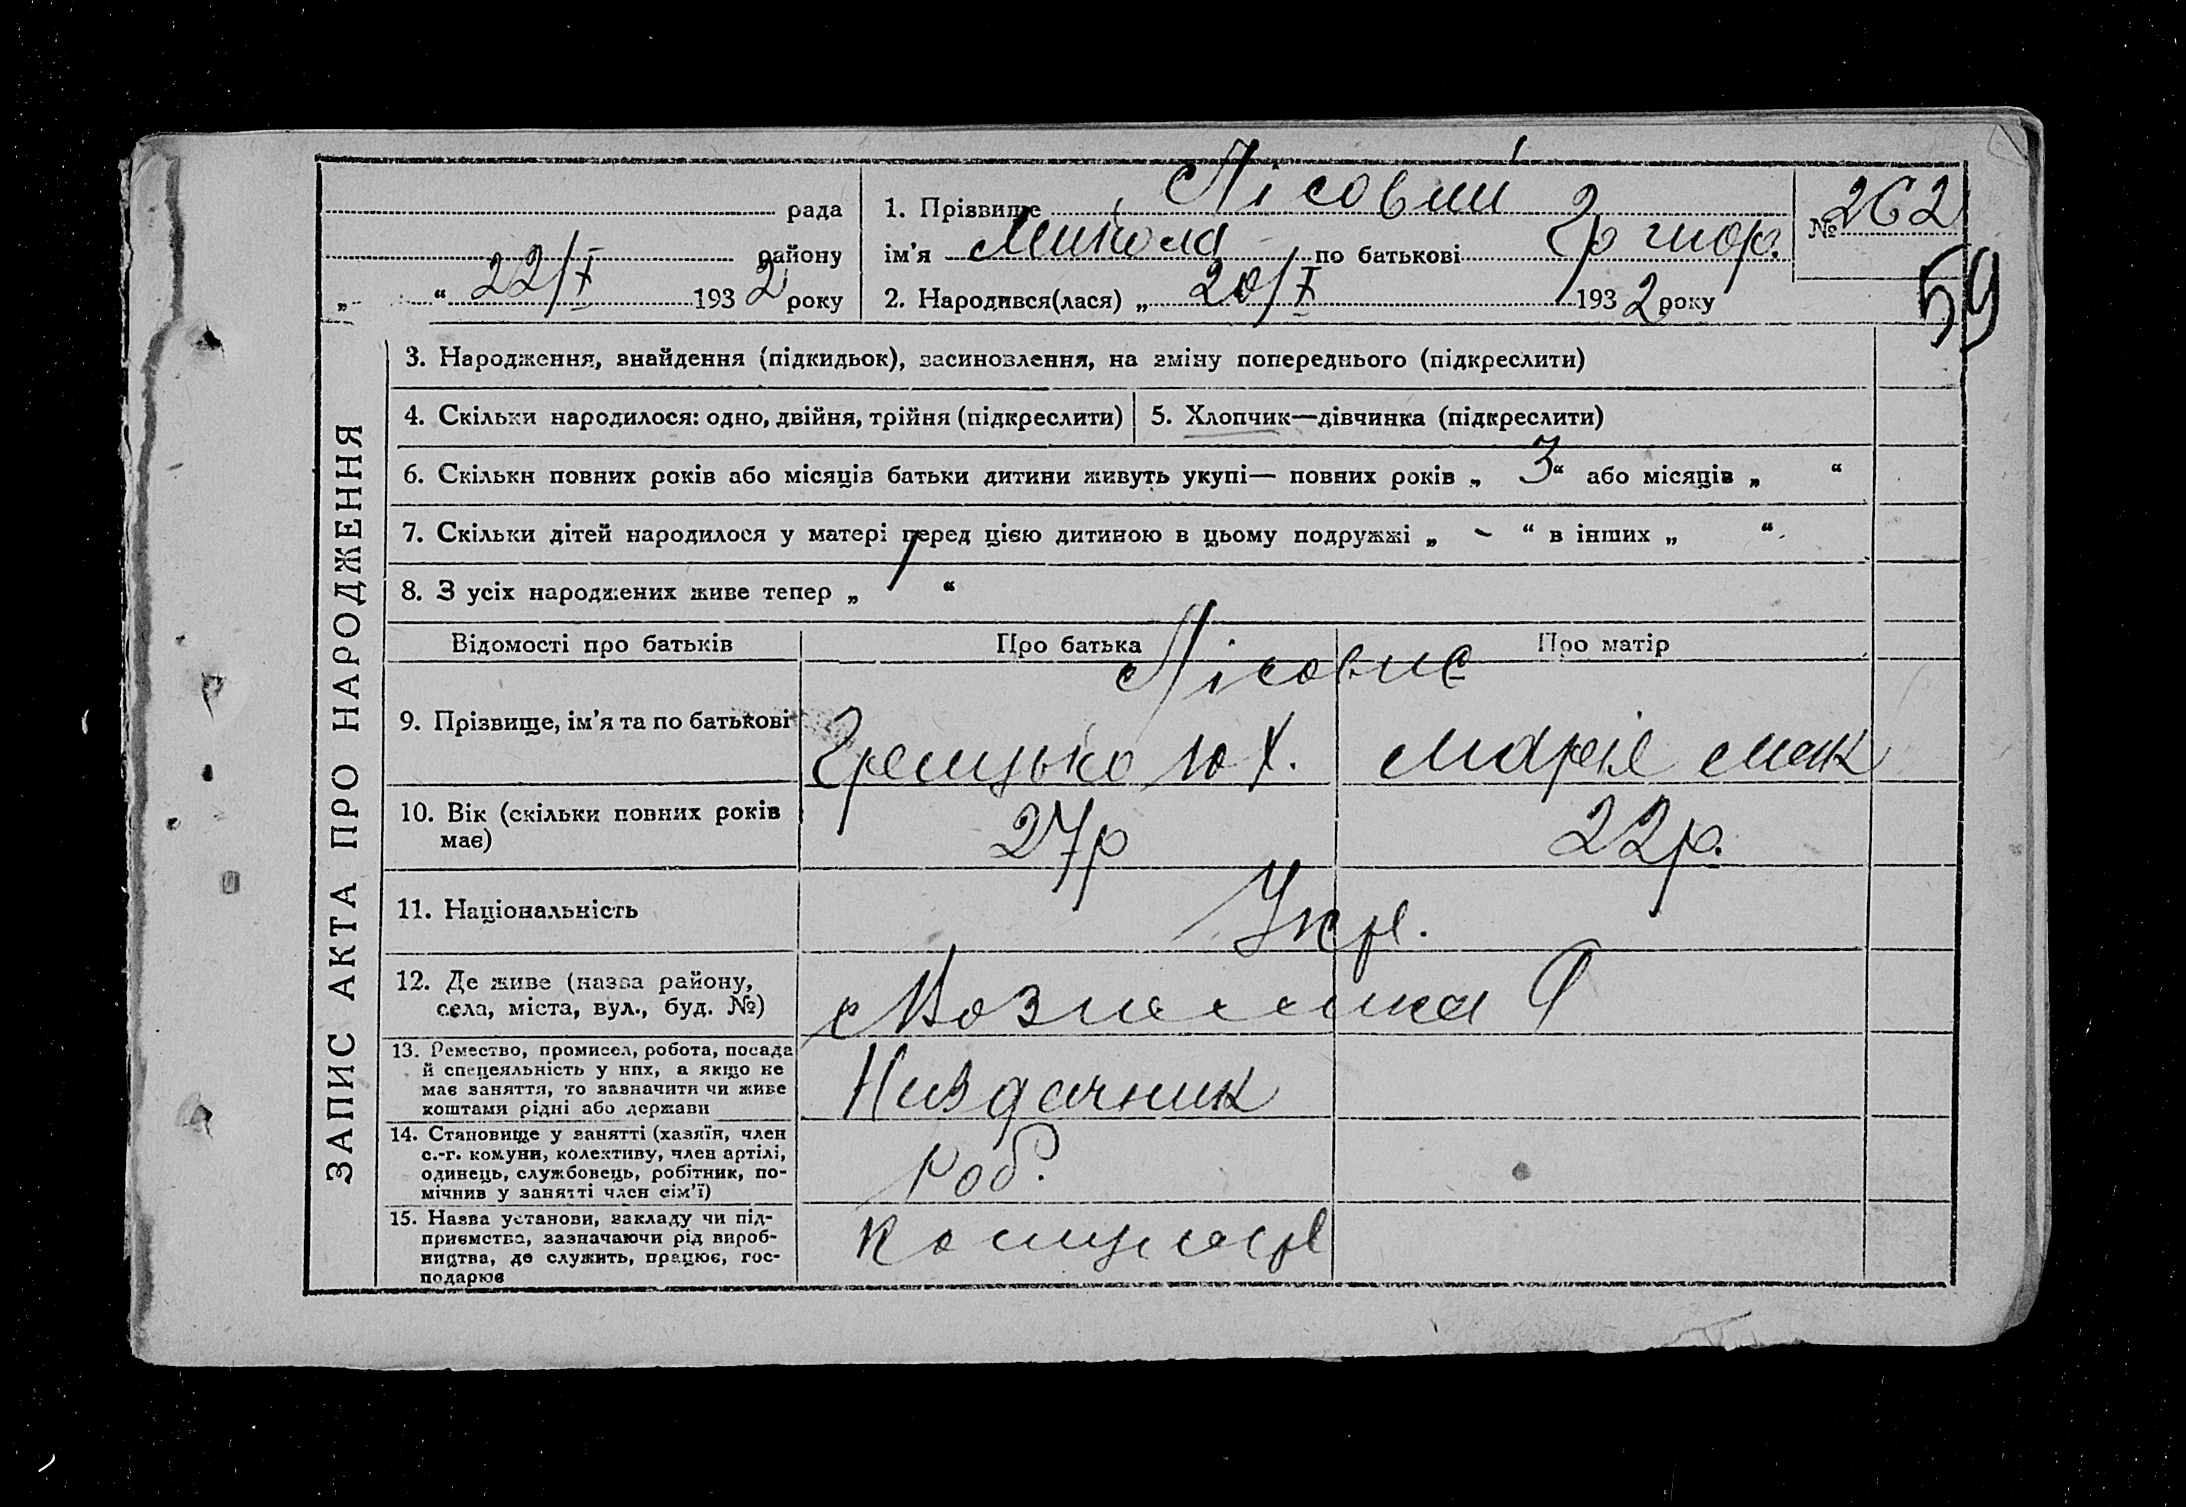 рада
1. Прізвище Лісовий
№ 262
району
ім'я Микола по батькові Григор.
„ “ 22/X 1932 року
2. Народився(лася) „ 20/X 1932 року
59
ЗАПИС АКТА ПРО НАРОДЖЕННЯ
3. Народження, знайдення (підкидьок), засиновлення, на зміну попереднього (підкреслити)
4. Скільки народилося: одно, двійня, трійня (підкреслити)
5. Хлопчик—дівчинка (підкреслити)
6. Скільки повних років або місяців батьки дитини живуть укупі— повних років „ 3 “ або місяців „ “
7. Скільки дітей народилося у матері перед цією дитиною в цьому подружжі „ - “ в інших „ “
8. З усіх народжених живе тепер „ 1 “
Відомості про батьків
Про батька
Про матір
Лісові
9. Прізвище, ім'я та по батькові
Грицько Юх.
Марія
10. Вік (скільки повних років має)
27р
22р.
11. Національність
Укр.
12. Де живе (назва району, села, міста, вул., буд. №)
13. Ремество, промисел, робота, посада й спецеяльність у них, а якщо не має заняття, то зазначити чи живе коштами рідні або держави
14. Становище у занятті (хазяїн, член с.-г. комуни, колективу, член артілі, одинець, службовець, робітник, помічнив у занятті член сім'ї)
роб.
15. Назва установи, закладу чи підприємства, зазначаючи рід виробництва, де служить, працює, господарює